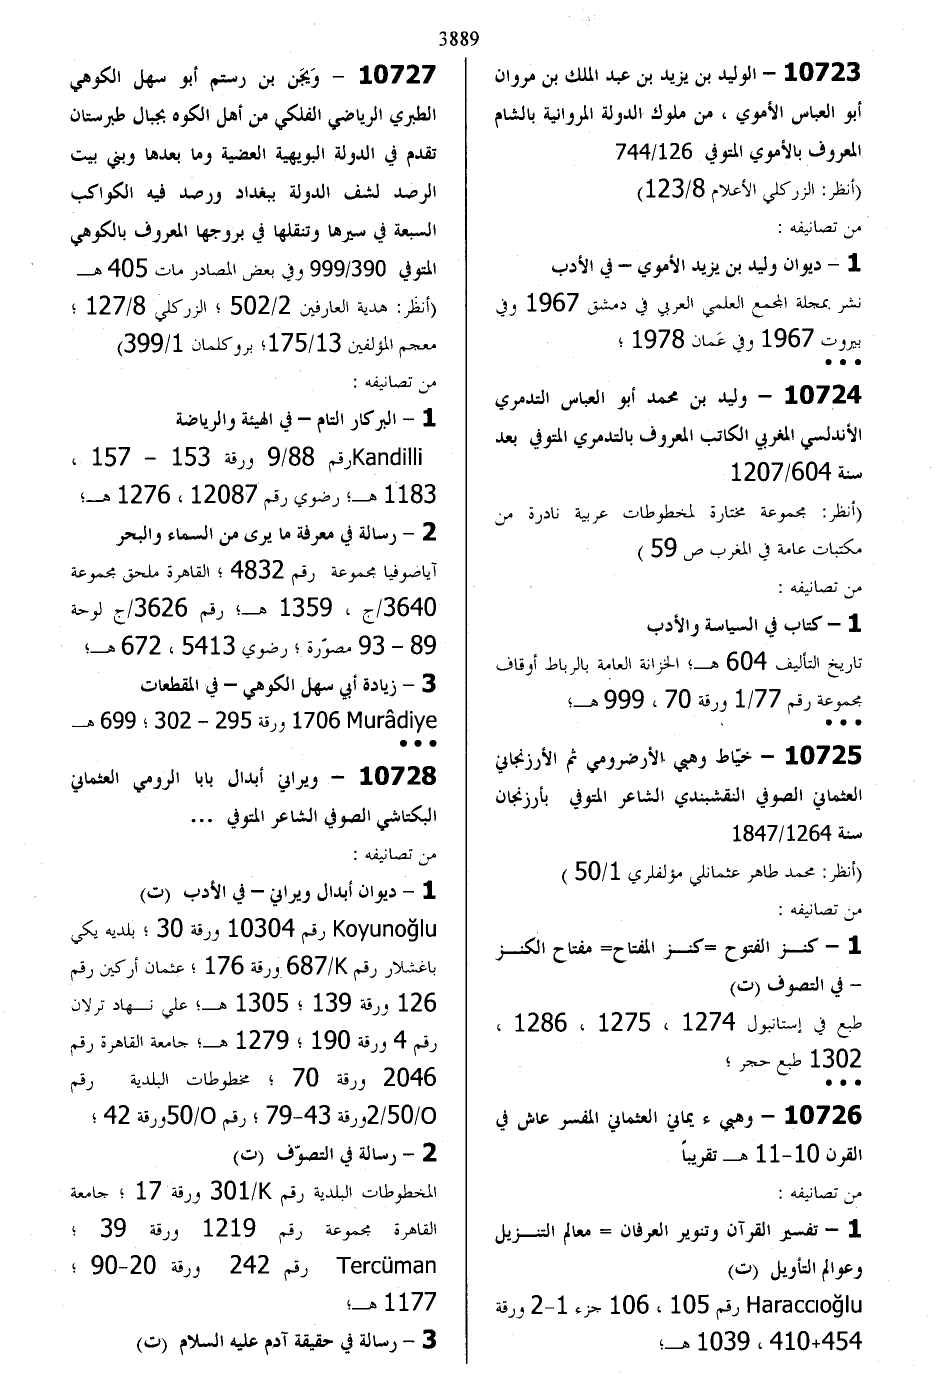 3889
10723 – الوليد بن يزيد بن عبد الملك بن مروان
أبو العباس الأموي ، من ملوك الدولة المروانية بالشام
المعروف بالأموي المتوفي 744/126
(أنظر: الزركلي الأعلام 123/8)
من تصانيفه :
1 – ديوان وليد بن يزيد الأموي – في الأدب
نشر بمجلة المجمع العلمي العربي في دمشق 1967 وفي
بيروت 1967 وفي عَمان 1978 ؛
•••
10724 – وليد بن محمد أبو العباس التدمري
الأندلسي المغربي الكاتب المعروف بالتدمري المتوفي بعد
سنة 1207/604
(أنظر: مجموعة مختارة لمخطوطات عربية نادرة من
مكتبات عامة في المغرب ص 59 )
من تصانيفه :
1 – كتاب في السياسة والأدب
تاريخ التأليف 604 هـ؛ الخزانة العامة بالرباط أوقاف
مجموعة رقم 1/77 ورقة 70 ، 999 هـ؛
•••
10725 – خيّاط وهبي الأرضرومي ثم الأرزنجاني
العثماني الصوفي النقشبندي الشاعر المتوفي بأرزنجان
سنة 1847/1264
(أنظر: محمد طاهر عثمانلي مؤلفلري 50/1 )
من تصانيفه :
1 – كنـز الفتوح =كنـز المفتاح= مفتاح الكنـز
– في التصوف (ت)
طبع في إستانبول 1274 ، 1275 ، 1286 ،
1302 طبع حجر ؛
•••
10726 – وهبي ء يماني العثماني المفسر عاش في
القرن 10-11 هـ تقريباً
من تصانيفه :
1 – تفسير القرآن وتنوير العرفان = معالم التنـزيل
وعوالم التأويل (ت)
Haraccıoğlu رقم 105 ، 106 جزء 1-2 ورقة
454+410 ، 1039 هـ؛
10727 – وَيجَن بن رستم أبو سهل الكوهي
الطبري الرياضي الفلكي من أهل الكوه بجبال طبرستان
تقدم في الدولة البويهية العضية وما بعدها وبني بيت
الرصد لشف الدولة ببغداد ورصد فيه الكواكب
السبعة في سيرها وتنقلها في بروجها المعروف بالكوهي
المتوفي 999/390 وفي بعض المصادر مات 405 هـ
(أنظر: هدية العارفين 502/2 ؛ الزركلي 127/8 ؛
معجم المؤلفين 175/13؛ بروكلمان 399/1)
من تصانيفه :
1 – البركار التام – في الهيئة والرياضة
Kandilli رقم 9/88 ورقة 153 – 157 ،
1183 هـ؛ رضوي رقم 12087 ، 1276 هـ؛
2 – رسالة في معرفة ما يرى من السماء والبحر
آياصوفيا مجموعة رقم 4832 ؛ القاهرة ملحق مجموعة
3640/ج ، 1359 هـ؛ رقم 3626/ج لوحة
89 – 93 مصوّرة ؛ رضوي 5413 ، 672 هـ؛
3 – زيادة أبي سهل الكوهي – في المقطعات
Murâdiye 1706 ورقة 295 – 302 ؛ 699 هـ
•••
10728 – ويراني أبدال بابا الرومي العثماني
البكتاشي الصوفي الشاعر المتوفي ...
من تصانيفه :
1 – ديوان أبدال ويراني – في الأدب (ت)
Koyunoğlu رقم 10304 ورقة 30 ؛ بلديه يكي
باغشلار رقم 687/K ورقة 176 ؛ عثمان أركين رقم
126 ورقة 139 ؛ 1305 هـ؛ علي نـهاد ترلان
رقم 4 ورقة 190 ؛ 1279 هـ؛ جامعة القاهرة رقم
2046 ورقة 70 ؛ مخطوطات البلدية رقم
2/50/O ورقة 43-79 ؛ رقم 50/O ورقة 42 ؛
2 – رسالة في التصوّف (ت)
المخطوطات البلدية رقم 301/K ورقة 17 ؛ جامعة
القاهرة مجموعة رقم 1219 ورقة 39 ؛
Tercüman رقم 242 ورقة 20-90 ؛
1177 هـ؛
3 – رسالة في حقيقة آدم عليه السلام (ت)